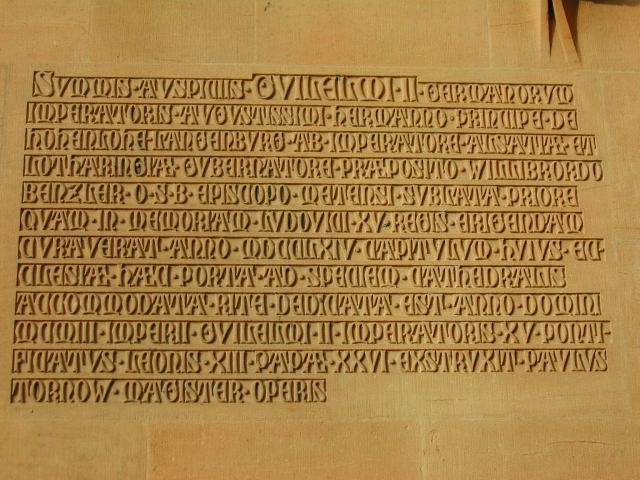 SVMMIS·AVSPICIIS·GVILEILMI·II·GERMANORVM
IMPERATORIS·AVGVSTISSIMI·HERMANNO·PRINCIPE·DE
HOHENLOHE·LANGENBVRG·AB·IMPERATORE·ALSATIAE·ET
LOTHARINGIÆ·GVBERNATORE·PRÆPOSITO·WILLIBRORDO
BENZLER·O·S·B·EPISCOPO·METENSI·SVBLATA·PRIORE
QVAM·IN·MEMORIAM·LVDOVICI·XV·REGIS·ERIGENDAM
CVRAVERAT·ANNO·MDCCLXIV·CAPITVLVM·HVIVS·EC-
CLESIÆ·HÆC·PORTA·AD·SPECIEM·CATHEDRALIS
ACCOMMODATA·RITE·DEDICATA·EST·ANNO·DOMINI
MCMIII·IMPERII·GVILEILMI·II·IMPERATORIS·XV·PONTI-
FICATVS·LEONIS·XIII·PAPÆ·XXVI·EXSTRVXIT·PAVLVS
TORNOW·MAGISTER·OPERIS